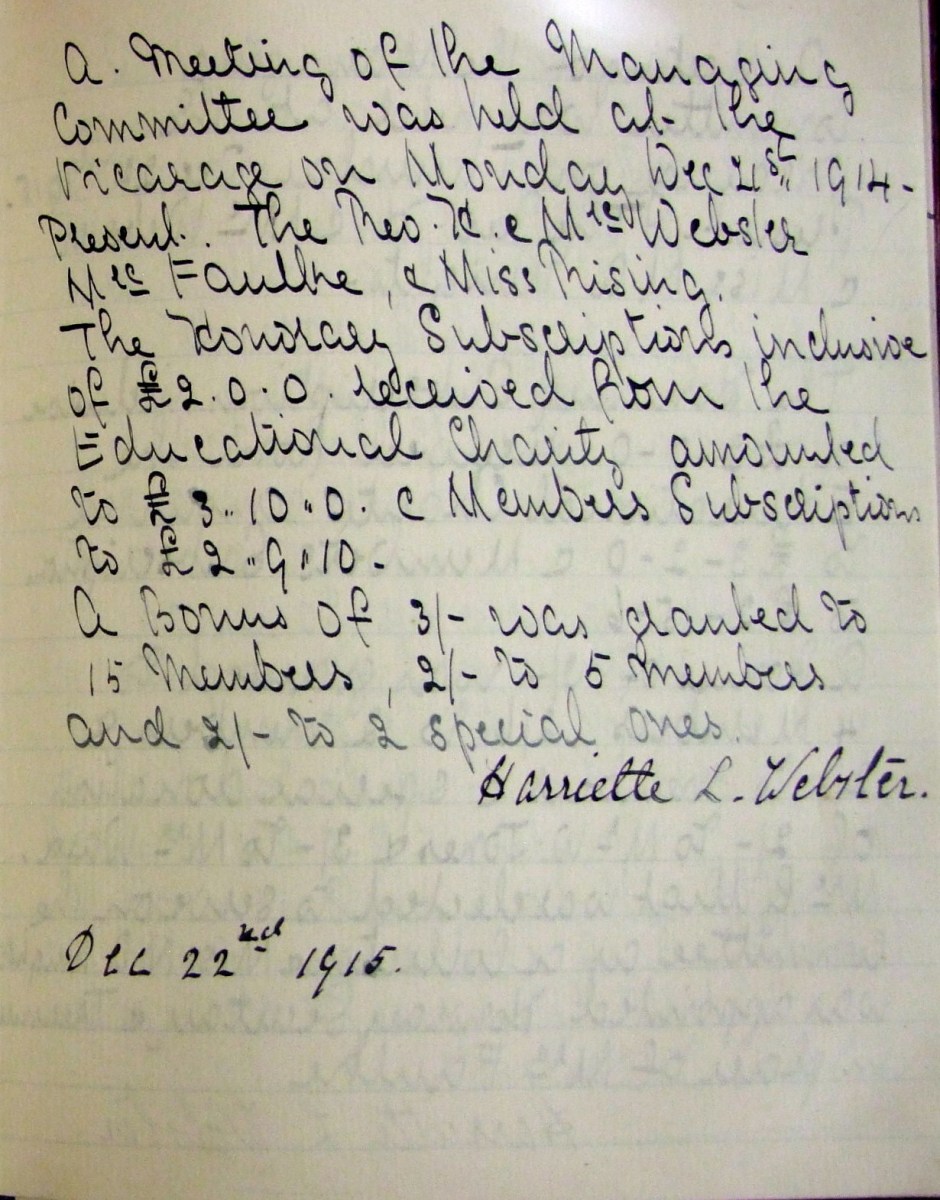 A. Meeting of the Managing
Committee was held at the
Vicarage on Monday Dec 21st 1914 -
Present. The Rev. K. & Mrs Webster
Mrs Faulke, & Miss Rising.
The Honorary Subscriptions inclusive
of £2.0.0. received from the
Educational Charity amounted
to £3..10..0. & Members Subscriptions
to £2..9..10 -
A Bonus of 3/- was granted to
15 Members, 2/- to 5 Members
and 2/- to 2 special ones.
Harriette L. Webster.
Dec 22nd 1915.